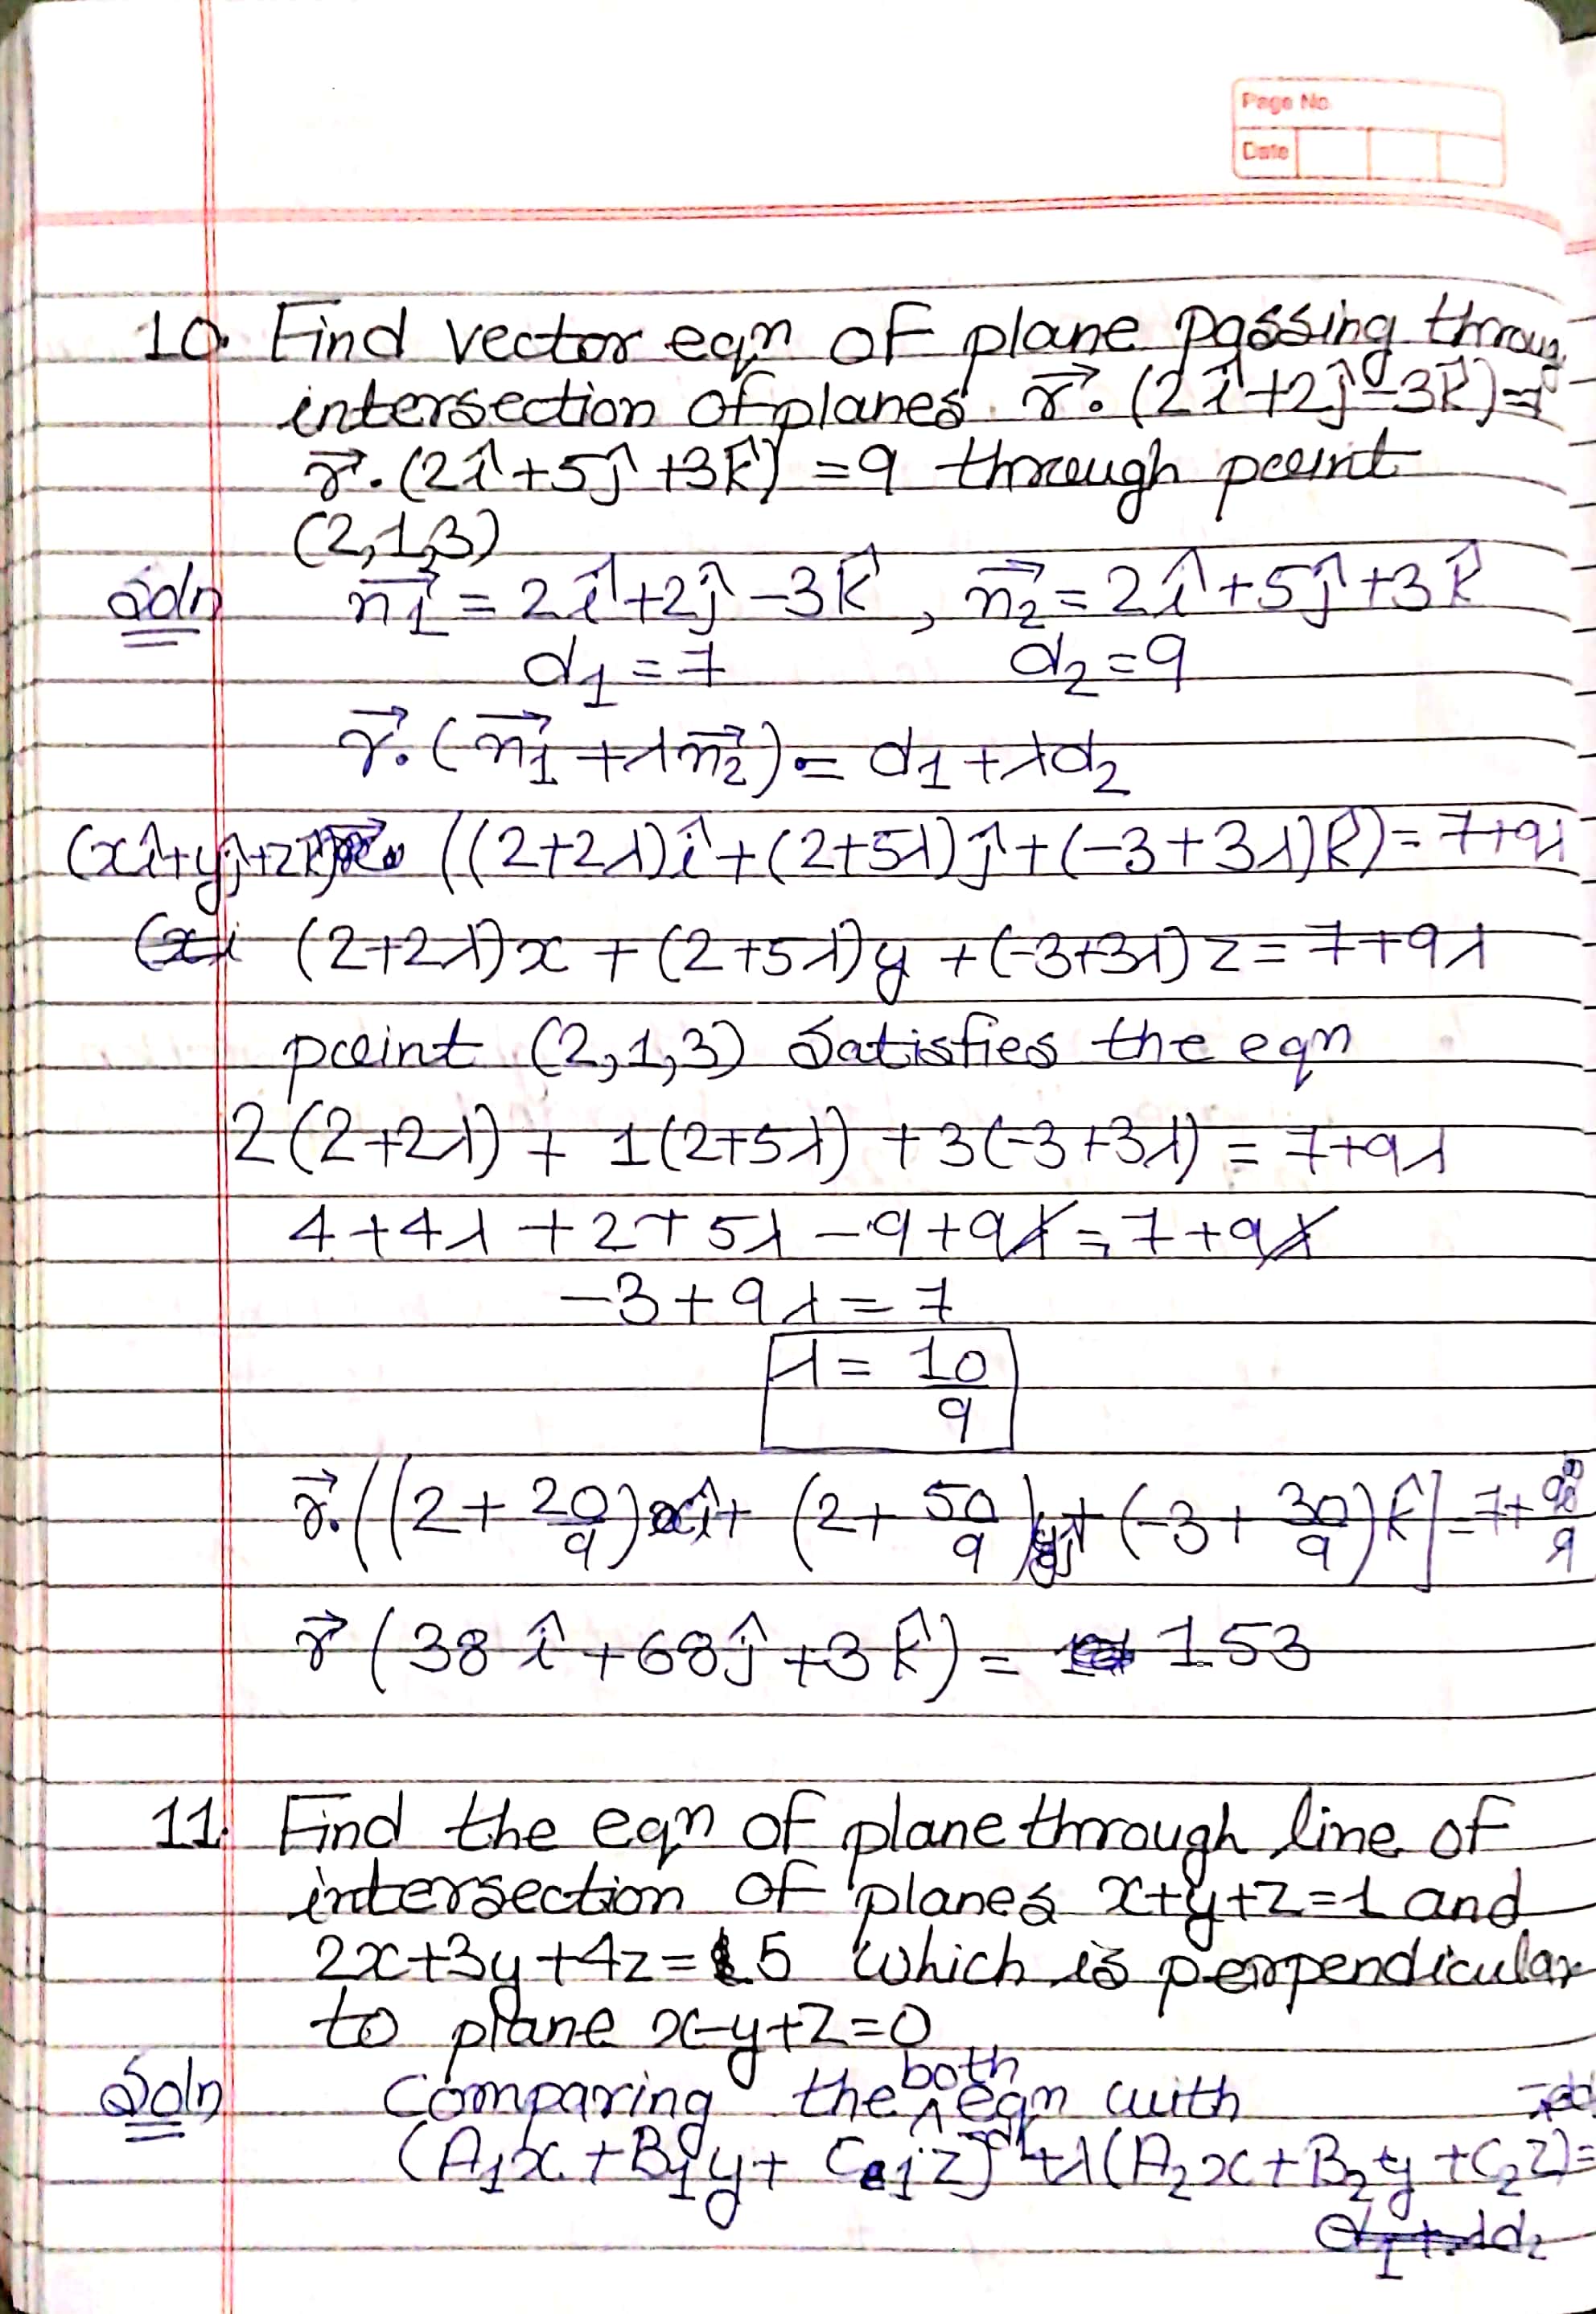 Page No.
Date
10. Find vector eqn of plane passing throug
intersection of planes r⃗.(2î+2ĵ-3k̂)=7
r⃗.(2î+5ĵ+3k̂)=9 through point
(2,1,3)
Soln n⃗1=2î+2ĵ-3k̂, n⃗2=2î+5ĵ+3k̂
d1=7 d2=9
r⃗.(n⃗1+λn⃗2)=d1+λd2
(xî+yĵ+zk̂). ((2+2λ)î+(2+5λ)ĵ+(-3+3λ)k̂)=7+9λ
(2+2λ)x+(2+5λ)y+(-3+3λ)z=7+9λ
point (2,1,3) satisfies the eqn
2(2+2λ)+1(2+5λ)+3(-3+3λ)=7+9λ
4+4λ+2+5λ-9+9λ=7+9λ
-3+9λ=7
λ=10/9
r⃗.((2+20/9)î+(2+50/9)ĵ+(-3+30/9)k̂]=7+90/9
r⃗(38î+68ĵ+3k̂)= 153
11. Find the eqn of plane through line of
intersection of planes x+y+z=1 and
2x+3y+4z=5 which is perpendicular
to plane x-y+z=0
Soln Comparing the both eqn with
(A1x+B1y+C1z)-d1+λ(A2x+B2y+C2z)=